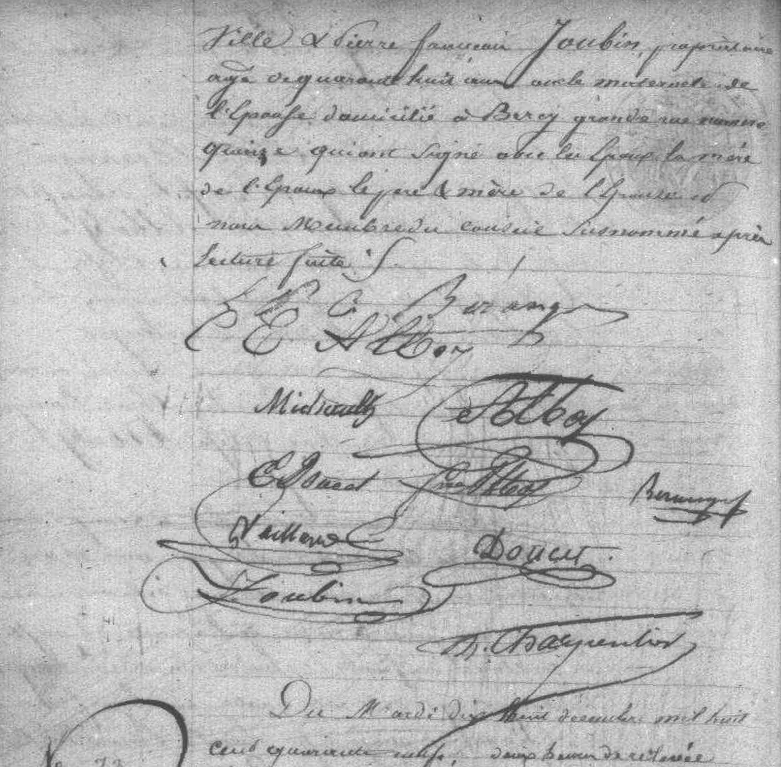 Ville & Pierre francois Joubin, propriétaire
agé de quarante huit ans oncle maternele de
l'Epouse domicilié à Bercy grande rue numero
quinze qui ont signé avec les Epoux la mère
de l'Epoux le pere & mère de l'Epouse et
nous Membre du conseil susnommé après
lecture faite ./.
E Alboy
Michault
Alboy
E Doucet
Alboy
Vaillant
Doucet
Joubin
Charpentier
Du Mardi dix huit décembre mil huit
cent quarante neuf, deux heures de relevée
No 73